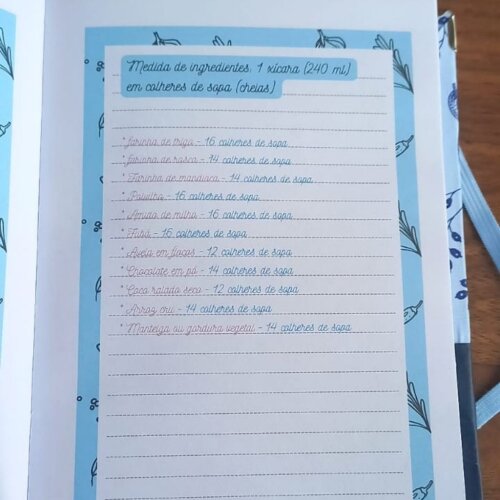 Medida de ingredientes, 1 xícara (240 ml)
em colheres de sopa (cheias)
* farinha de trigo - 16 colheres de sopa
* farinha de rosca - 14 colheres de sopa
* Farinha de mandioca - 14 colheres de sopa
* Polvilho - 16 colheres de sopa
* Amido de milho - 16 colheres de sopa
* Fubá - 16 colheres de sopa
* Aveia em flocos - 12 colheres de sopa
* Chocolate em pó - 14 colheres de sopa
* Coco ralado seco - 12 colheres de sopa
* Arroz cru - 14 colheres de sopa
* Manteiga ou gordura vegetal - 14 colheres de sopa